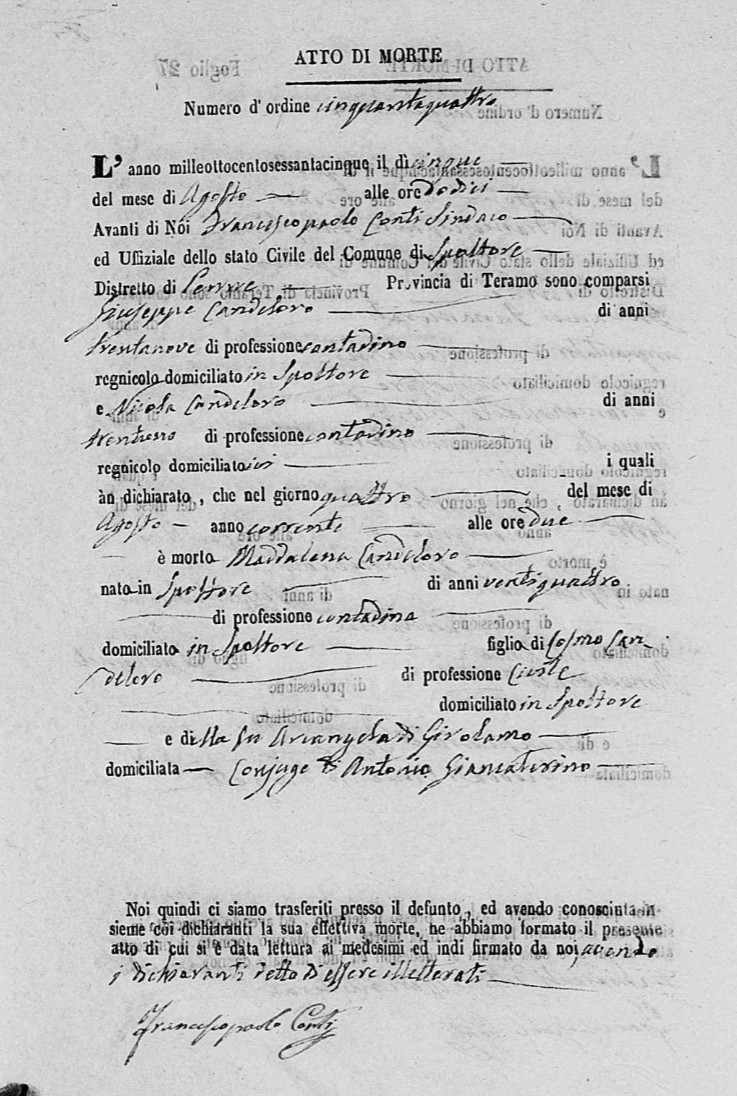 ATTO DI MORTE
Numero d' ordine cinquantaquattro
L' anno milleottocentosessantacinque il dì cinque
del mese di Agosto alle ore dodici
Avanti di Noi Francescopaolo Conti Sindaco
ed Uffiziale dello stato Civile del Comune di Spoltore
Distretto di Penne Provincia di Teramo sono comparsi
Giuseppe Candeloro di anni
trentanove di professione contadino
regnicolo domiciliato in Spoltore
e Nicola Candeloro di anni
di professione contadino
regnicolo domiciliato ivi i quali
àn dichiarato , che nel giorno quattro del mese di
Agosto anno corrente alle ore due
è morta Maddalena Candeloro
nata in Spoltore di anni ventiquattro
di professione contadina
domiciliata in Spoltore figlia di Cosmo Can
deloro di professione Civile
domiciliato in Spoltore
e della fu Arcangela di Girolamo
domiciliata Conjuge di Antonio Giancaterino
Noi quindi ci siamo trasferiti presso il defunto, ed avendo conosciuta in
sieme coi dichiaranti la sua effettiva morte, ne abbiamo formato il presente
atto di cui si è data lettura ai medesimi ed indi firmato da noi, avendo
i dichiaranti detto d'essere illetterati
Francescopaolo Conti